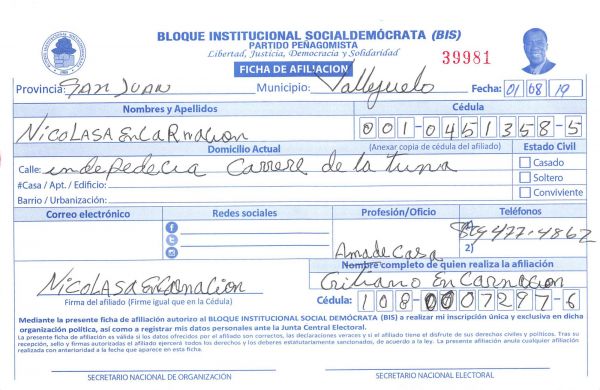 BLOQUE INSTITUCIONAL SOCIALDEMÓCRATA (BIS)
PARTIDO PEÑAGOMISTA
Libertad, Justicia, Democracia y Solidaridad
39981
FICHA DE AFILIACION
Provincia: SAN JUAN Municipio: Vallejuelo Fecha: 01/08/19
Nombres y Apellidos Cédula
NICOLASA EnCARnAcion 001-0451358-5
Domicilio Actual (Anexar copia de cédula del afiliado) Estado Civil
Calle: indepedecia Carrere de la tuna Casado
#Casa / Apt. / Edificio: Soltero
Barrio / Urbanización: Conviviente
Correo electrónico Redes sociales Profesión/Oficio Teléfonos
809 477-4862
2)
Ama de Casa
Nombre completo de quien realiza la afiliación
NICOLASA EnCARnAcion Critiano EnCarnacion
Firma del afiliado (Firme igual que en la Cédula) Cédula: 108-0007297-6
Mediante la presente ficha de afiliación autorizo al BLOQUE INSTITUCIONAL SOCIAL DEMÓCRATA (BIS) a realizar mi inscripción única y exclusiva en dicha
organización política, así como a registrar mis datos personales ante la Junta Central Electoral.
La presente ficha de afiliación es válida si los datos ofrecidos por el afiliado son correctos, las declaraciones veraces y si el afiliado tiene el disfrute de sus derechos civiles y políticos. Tras su
recepción, sello y firmas autorizadas el afiliado ejercerá todos los derechos y los deberes estatutariamente sancionados, de acuerdo a la ley. La presente afiliación anula cualquier afiliación
realizada con anterioridad a la fecha que aparece en esta ficha.
SECRETARIO NACIONAL DE ORGANIZACIÓN SECRETARIO NACIONAL ELECTORAL